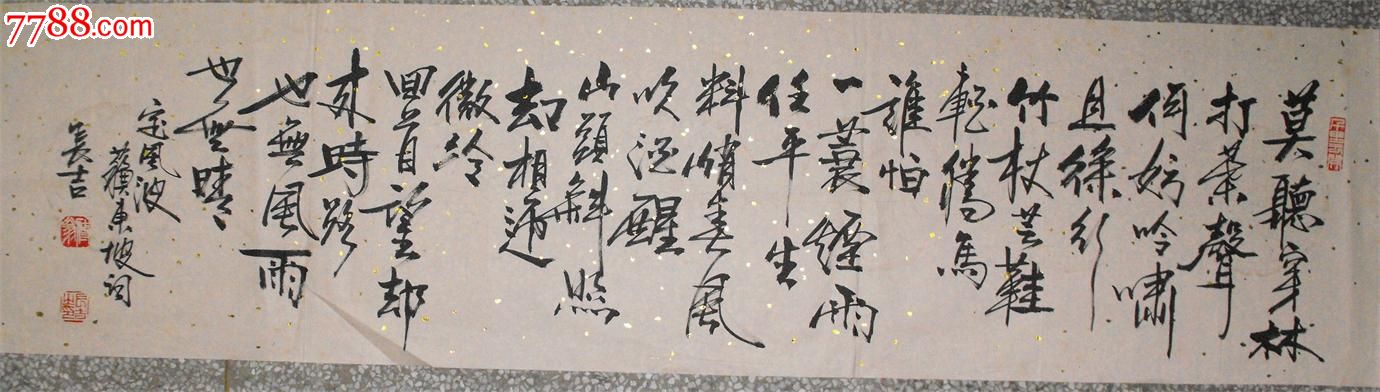 7788.com
莫聽穿林
打葉聲
何妨吟嘯
且徐行
竹杖芒鞋
輕勝馬
誰怕
一蓑煙雨
任平生
料峭春風
吹酒醒
山頭斜照
却相迎
微冷
回首望却
來時路
也無風雨
也無晴
定風波
蘇東坡詞